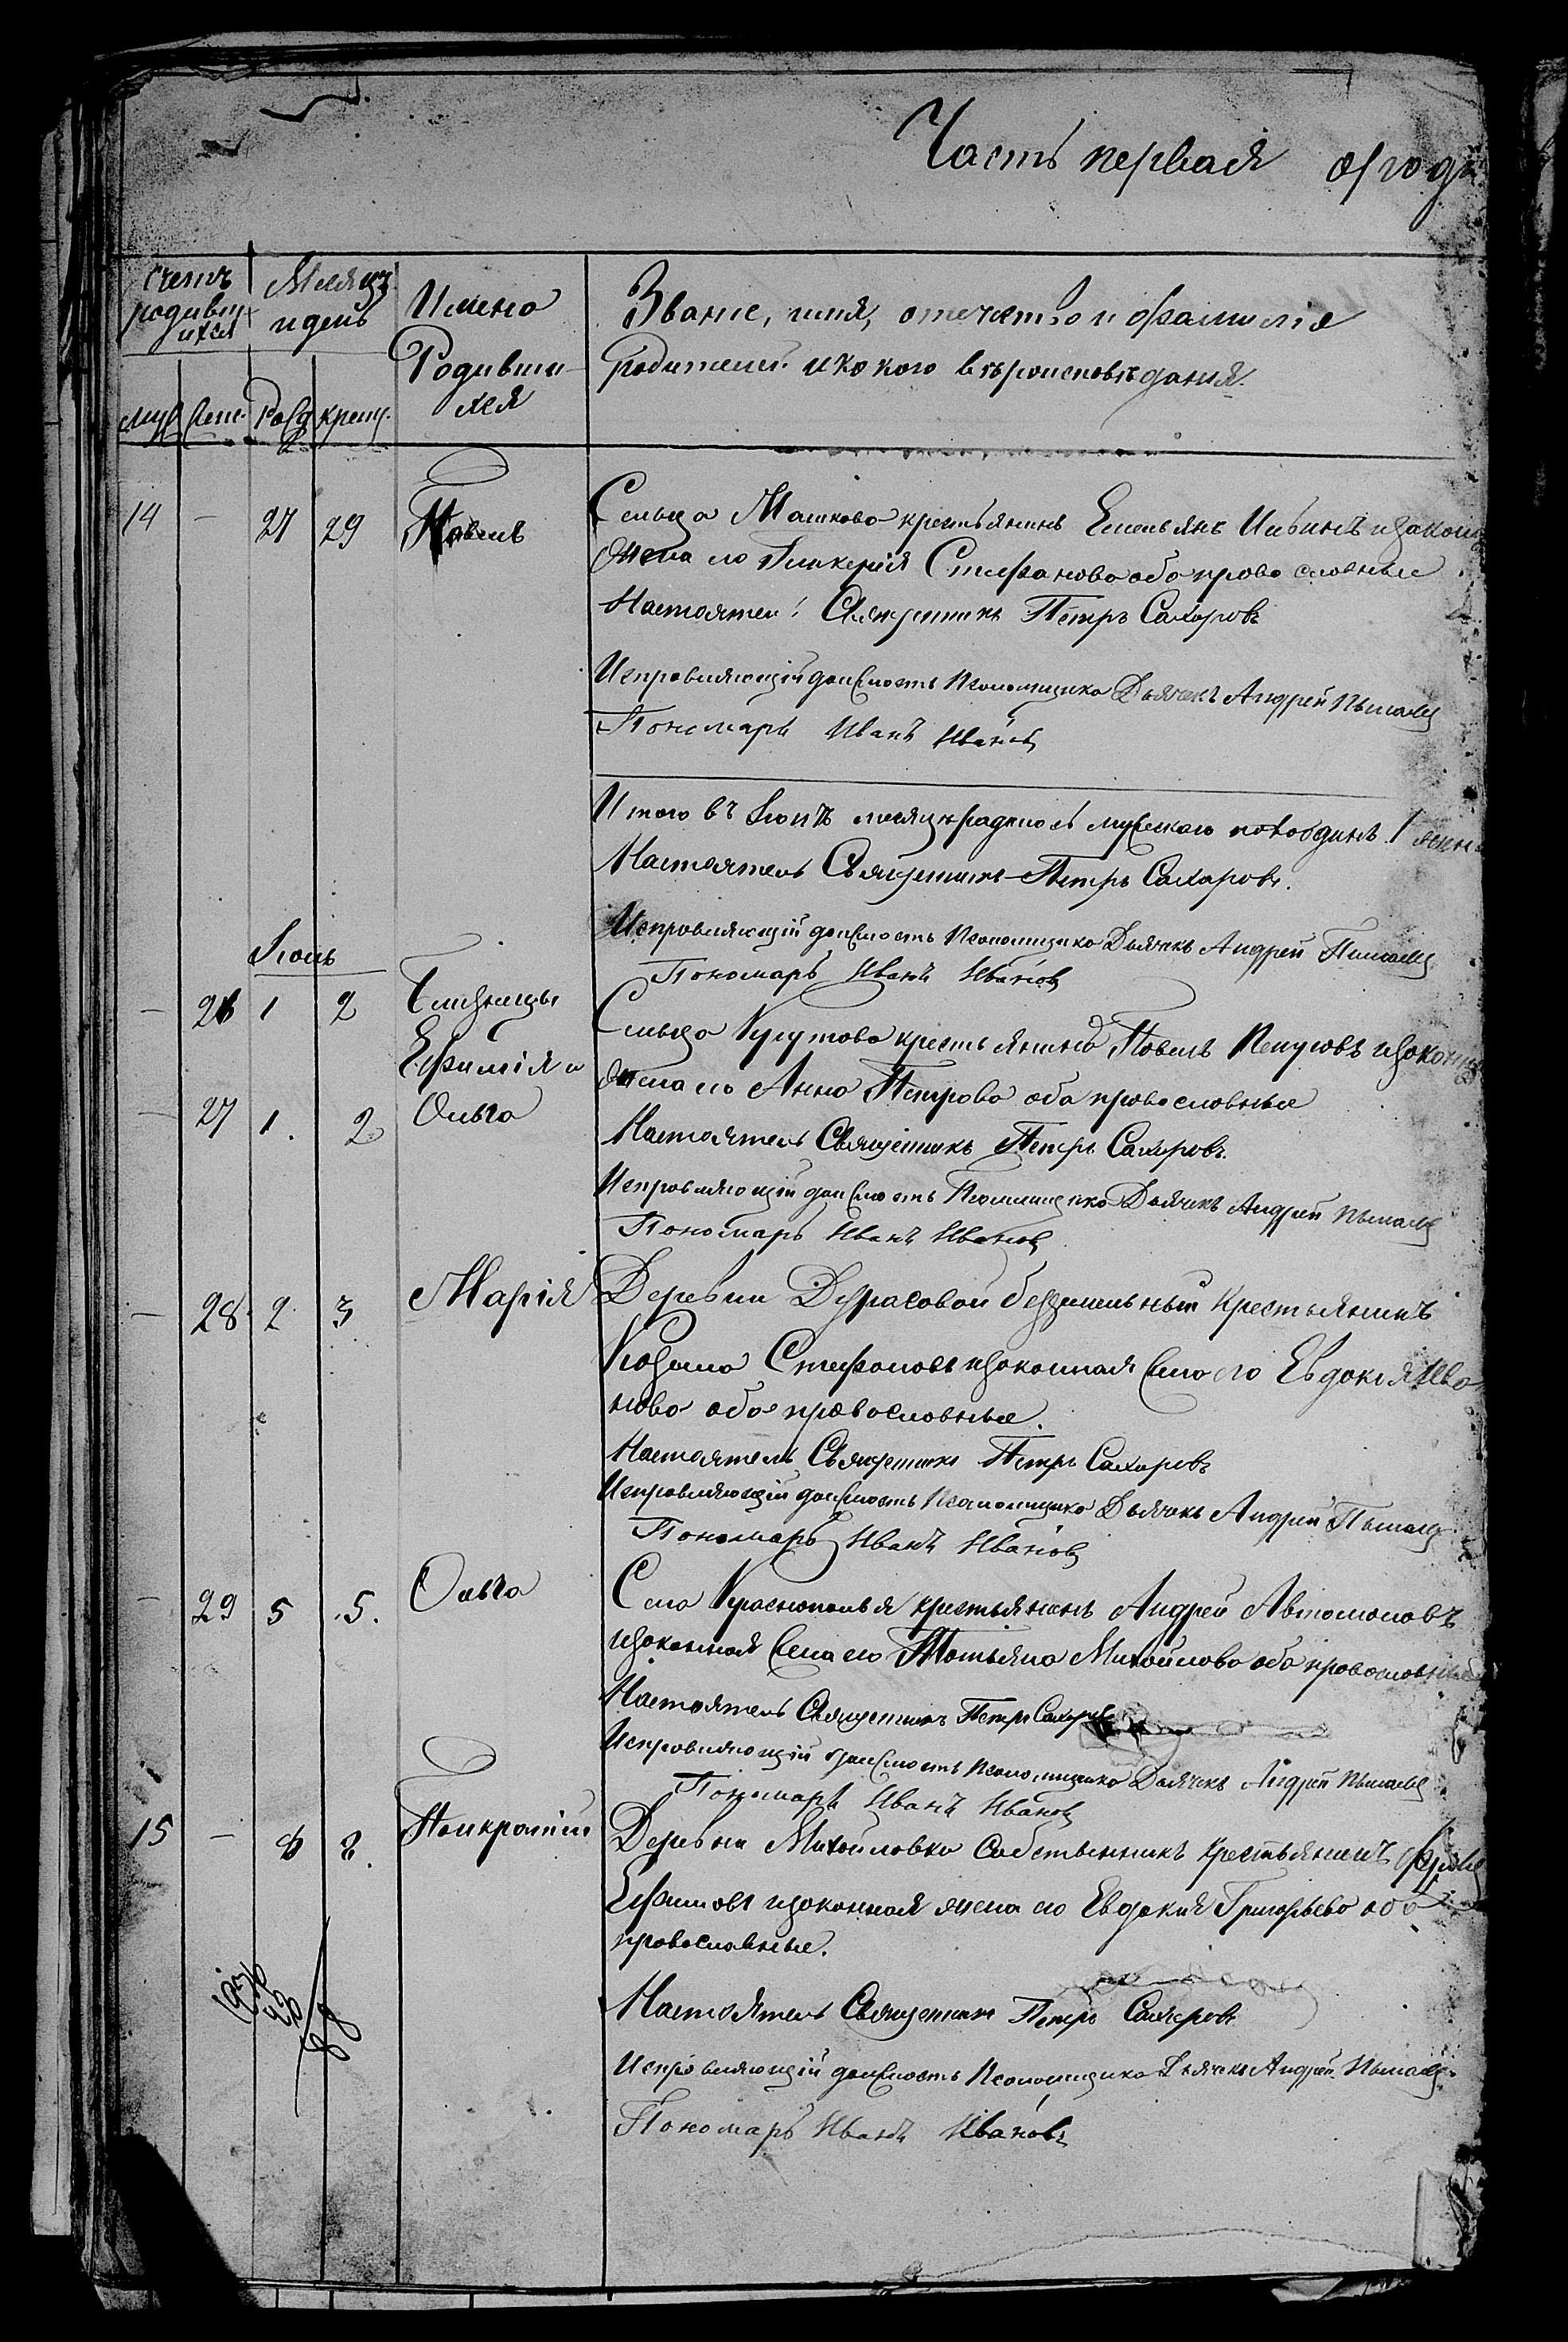 Часть первая о родi
Счетъ родивш ихся
Месяцъ и день
Имена Родивши- хся
Званiе, имя, отечество и фамилiя
родителей и какого вѣроисповѣданiя.
муж женс. рожд крещ.
14 – 27 29 Павелъ Сельца Машкова крестьянинъ Емельянъ Ильинъ и закон
жена его Гликерiя Стефанова оба православные
Настоятел: Священникъ Петръ Сахаровъ
Исправляющiй должность Псаломщика Дьячекъ Андрей
Пономарь Иванъ Ивановъ
Итого въ Iюнѣ месяцѣ родилось мужескаго пола одинъ 1
Настоятель Священникъ Петръ Сахаровъ.
Исправляющiй должность Псаломщика Дьячекъ Андрей
Пономарь Иванъ Ивановъ
Iюль
– 26 1 2 Близнецы Сельца крестьянинъ Павелъ и законная
Ефимiя и жена его Анна Петрова оба православные
– 27 1. 2 Ольга
Настоятель Священникъ Петръ Сахаровъ.
Исправляющiй должность Псаломщика Дьячекъ Андрей
Пономарь Иванъ Ивановъ
– 28. 2. 3 Марiя Деревни Дурасовой безземельный Крестьянинъ
Козьма Стефановъ и законная жена его Евдокiя Ива
нова оба православные.
Настоятель Священникъ Петръ Сахаровъ
Исправляющiй должность Псаломщика Дьячекъ Андрей
Пономарь Иванъ Ивановъ
– 29 5 5. Ольга Села Краснополья крестьянинъ Андрей Автомоновъ
и законная жена его Татьяна Михайлова оба православные
Настоятель Священникъ Петръ Сахаровъ
Исправляющiй должность Псаломщика Дьячекъ Андрей
Пономарь Иванъ Ивановъ
15 – 8 8. Панкратiй Деревни Михайловки Собственникъ Крестьянинъ
Ефимовъ и законная жена его Евдокия Григорьева оба
православные.
Настоятель Священникъ Петръ Сахаровъ
Исправляющiй должность Псаломщика Дьячекъ Андрей
Пономарь Иванъ Ивановъ